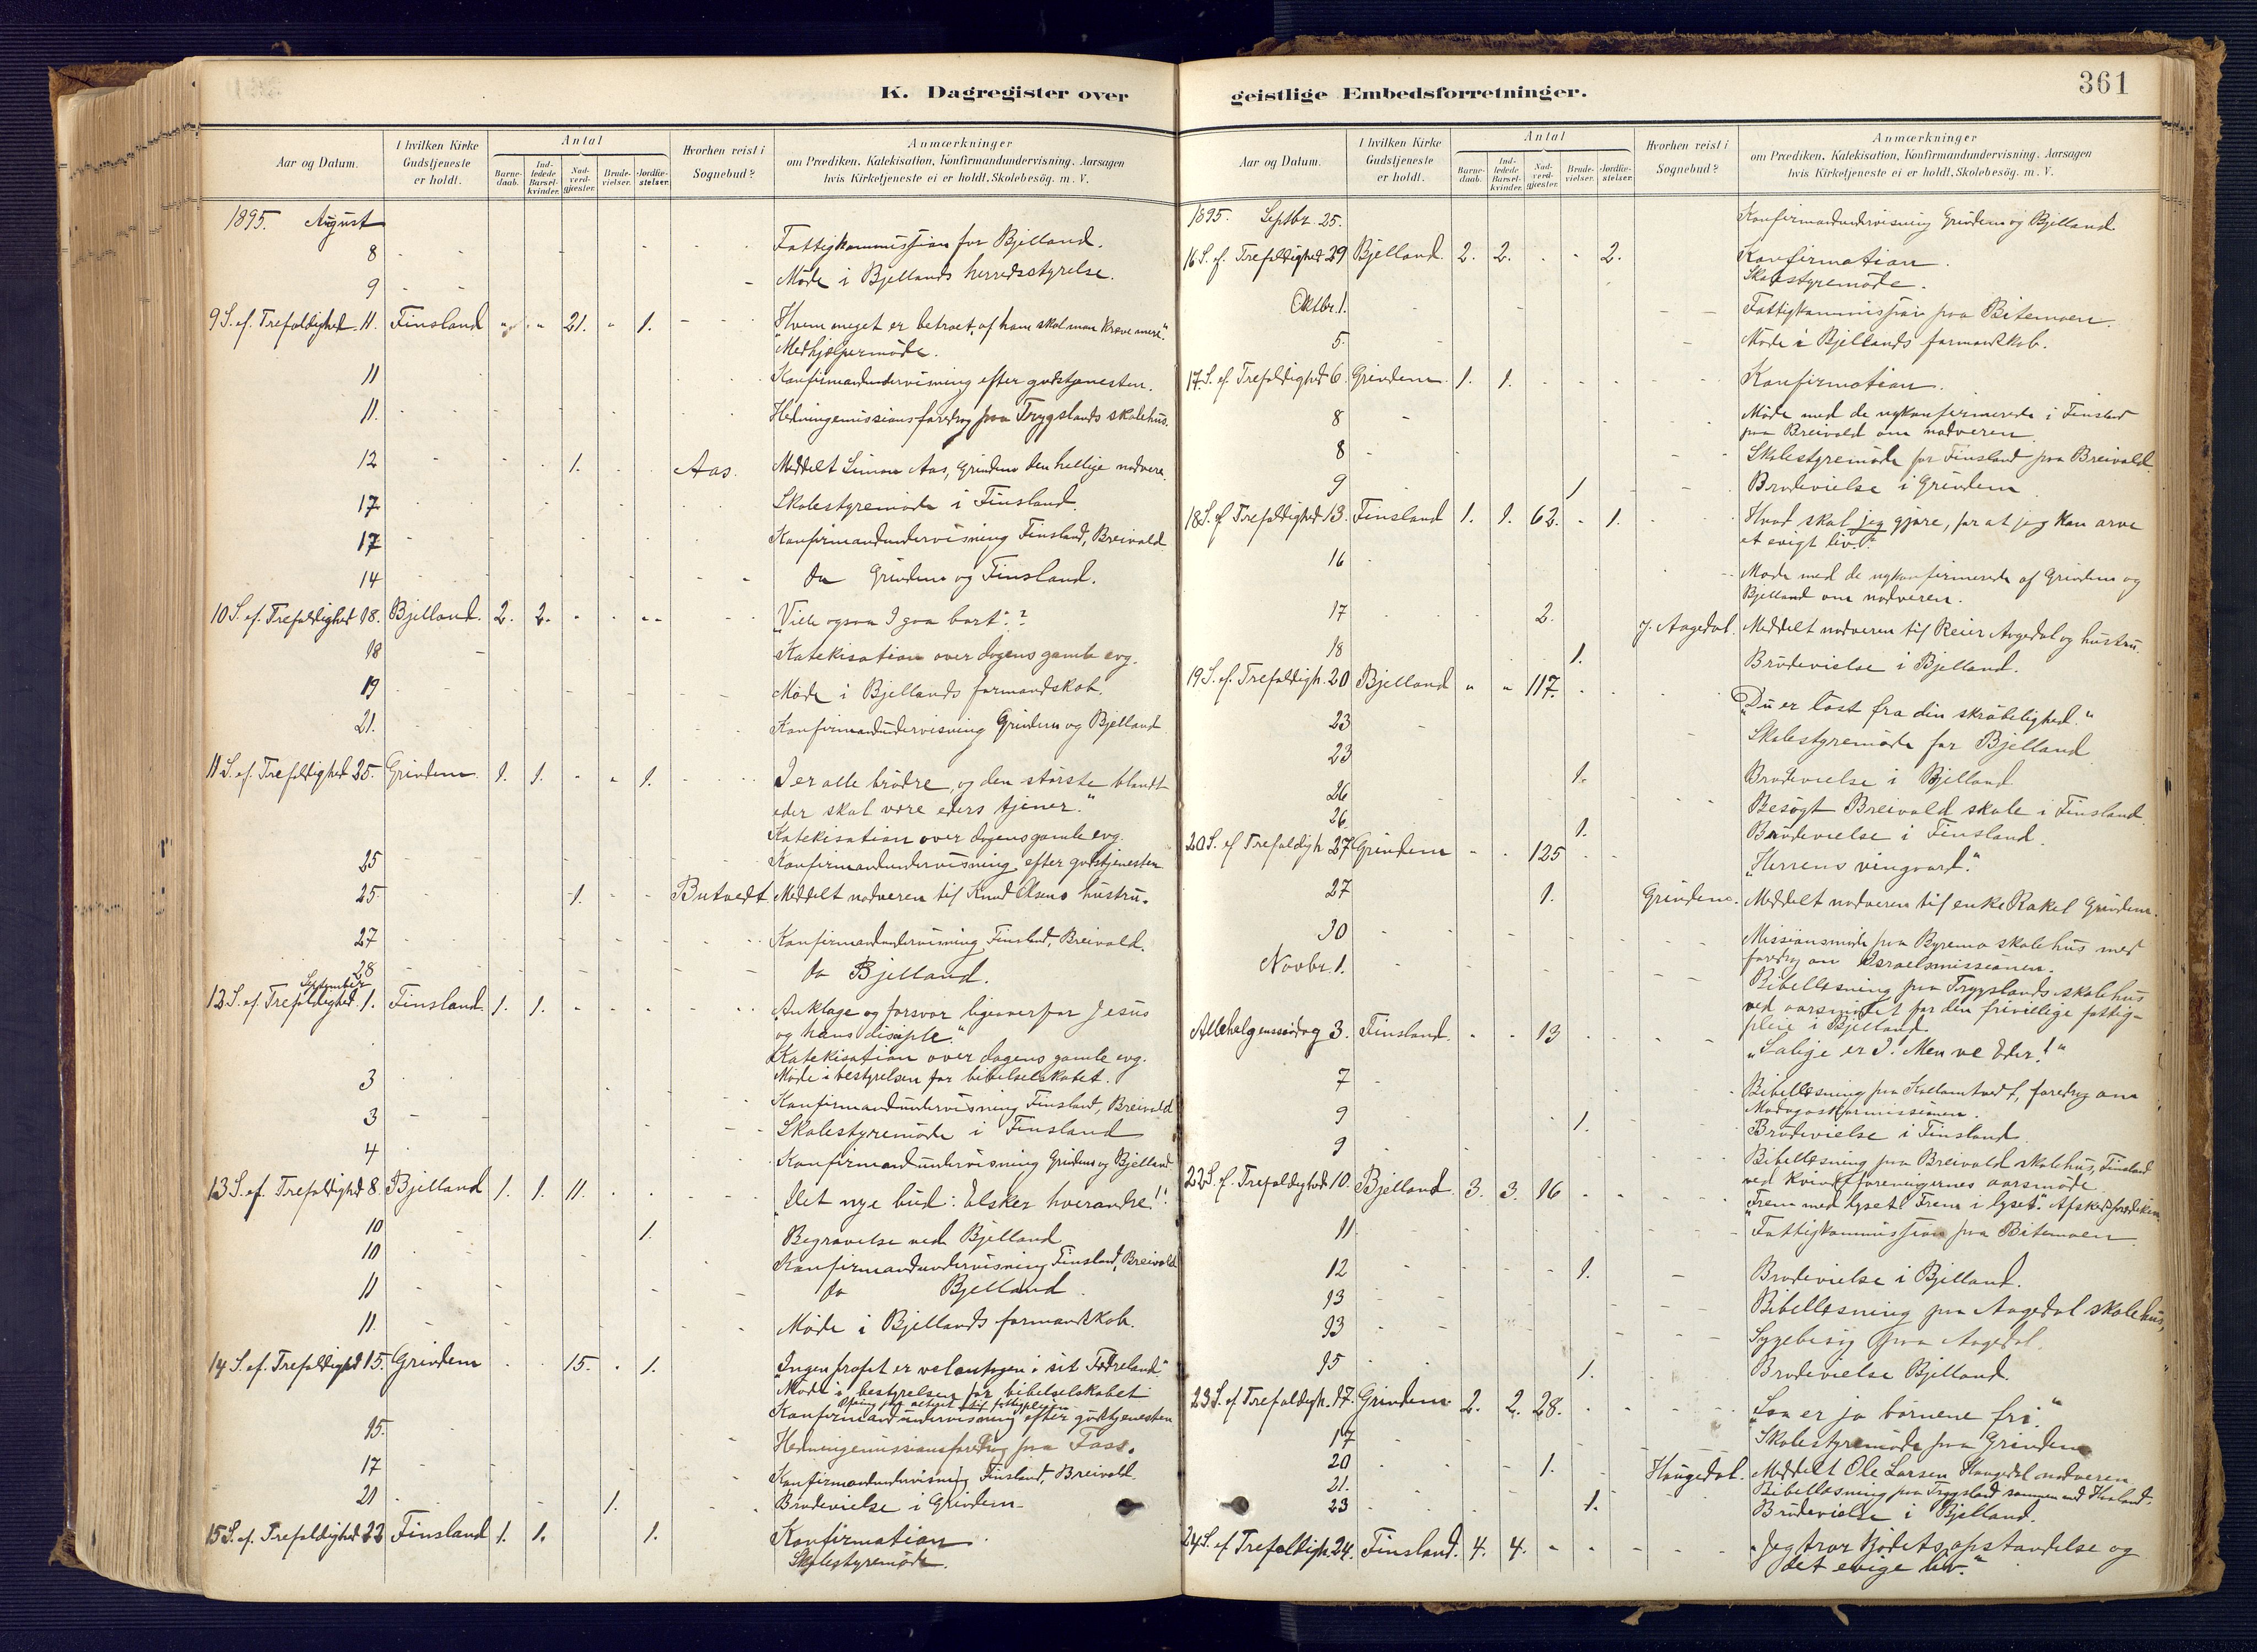 K. Dagregister over
Aar og Datum.
I hvilken Kirke Gudstjeneste er holdt.
Antal
Barne-daab.
Ind-ledede Barsel-kvinder.
Nad-verd-gjæster.
Brude-vielser.
Jordfæ-stelser.
Hvorhen reist i Sognebud?
Anmærkninger
om Prædiken, Katekisation, Konfirmandundervisning, Aarsagen
hvis Kirketjeneste ei er holdt, Skolebesøg. m. V.
1895. August
8 Fattigkommission for Bjelland.
9 Møde i Bjellands herredsstyrelse.
9 S. ef. Trefoldighed 11. Finsland " " 21. " 1. "Hvem meget er betroet, af ham skal man kræve mere."
Medhjælpermøde.
11 Konfirmandundervisning efter gudstjenesten.
11. Hedningemissionsforedrag paa Trygslands skolehus.
12 1. Aas. Meddelt Simon Aas, Grindem den hellige nadvere.
17 Skolestyremøde i Finsland.
17 Konfirmandundervisning Finsland, Breivold
14 do Grindem og Finsland.
10 S. ef. Trefoldighed 18. Bjelland. 2. 2. "Ville ogsaa I gaa bort"?
18 Katekisation over dagens gamle evg.
19 Møde i Bjellands formandskab.
21. Konfirmandundervisning Grindem og Bjelland
11 S. ef. Trefoldighed 25. Grindem 1. 1. 1. I er alle brødre, og den største blandt
eder skal være eders tjener."
Katekisation over dagens gamle evg.
25 Konfirmandundervisning efter gudstjenesten
25. 1. Butvedt Meddelt nadveren til Knud Olsens hustru.
27 Konfirmandundervisning Finsland, Breivold.
28 do Bjelland.
September
12 S. ef. Trefoldighed 1. Finsland. 1. 1. "Anklage og forsvar ligeoverfor Jesus
og hans disiple."
Katekisation over dagens gamle evg.
Møde i bestyrelsen for bibelselskabet.
3 Konfirmandundervisning Finsland, Breivold
3 Skolestyremøde i Finsland
4 Konfirmandundervisning Grindem og Bjelland
13 S. ef. Trefoldighed 8. Bjelland 1. 1. 11. "Det nye bud: Elsker hverandre!"
10 1. Begravelse ved Bjelland
10 Konfirmandundervisning Finsland, Breivold
11 do Bjelland
11. Møde i Bjellands formandskab.
14 S. ef. Trefoldighed 15. Grindem 15. 1. "Ingen profet er velantagen i sit Fædreland."
Møde i bestyrelsen for bibelselskabet
Konfirmandundervisning efter gudstjenesten
15. Hedningemissionsforedrag paa Foss.
17 Konfirmandundervisning Finsland, Breivold
21 1. Brudevielse i Grindem
15 S. ef. Trefoldighed 22 Finsland 1. 1. 1. Konfirmation
Skolestyremøde.
geistlige Embedsforretninger.
361
Aar og Datum.
I hvilken Kirke Gudstjeneste er holdt.
Antal
Barne-daab.
Ind-ledede Barsel-kvinder.
Nad-verd-gjæster.
Brude-vielser.
Jordfæ-stelser.
Hvorhen reist i Sognebud?
Anmærkninger
om Prædiken, Katekisation, Konfirmandundervisning, Aarsagen
hvis Kirketjeneste ei er holdt, Skolebesøg. m. V.
1895. Septbr. 25. Konfirmandundervisning Grindem og Bjelland
16 S. ef. Trefoldighed 29 Bjelland 2. 2. 2. Konfirmation.
Skolestyremøde.
Oktbr. 1. Fattigkommission paa Bitemoen.
5. Møde i Bjellands formandskab.
17. S. ef. Trefoldighed 6. Grindem 1. 1. Konfirmation.
8 Møde med de nykonfirmerede i Finsland
paa Breivold om nadveren.
8 Skolestyremøde for Finsland paa Breivold.
9 1 Brudevielse i Grindem
18 S. ef Trefoldighed 13. Finsland 1. 1. 62. 1. "Hvad skal jeg gjøre, for at jeg kan arve
et evigt liv?"
16 Møde med de nykonfirmerede af Grindem og
Bjelland om nadveren.
17 2. J. Aagedal. Meddelt nadveren til Reier Aagedal og hustru.
18 1. Brudevielse i Bjelland.
19 S. ef. Trefoldigh. 20 Bjelland " " 117. "Du er løst fra din skrøbelighed."
23 Skolestyremøde for Bjelland
23 1. Brudevielse i Bjelland
26 Besøgt Breivold skole i Finsland.
26. 1. Brudevielse i Finsland.
20 S. ef Trefoldigh 27 Grindem 125 "Herrens vingaard."
27 1. Grindem. Meddelt nadveren til enke Rakel Grindem.
30 Missionsmøde paa Byremo skolehus med
foredrag om Israelsmissionen.
Novbr. 1. Bibellæsning paa Trygslands skolehus
ved aarsmødet for den frivillige fattig-
pleie i Bjelland.
Allehelgenssøndag 3. Finsland. 13 "Salige er I. Men ve Eder!"
7 Bibellæsning paa foredrag om
Madagaskarmissionen.
9 1. Brudevielse i Finsland
9 Bibellæsning paa Breivold skolehus, Finsland
ved kvindeforeningernes aarsmøde.
22 S. ef. Trefoldighed 10. Bjelland. 3. 3. 16 "Frem med lyset! Frem i lyset." Afskedsprædiken.
11. Fattigkommission paa Bitemoen
12 1. Brudevielse i Bjelland.
13 Bibellæsning paa Aagedal skolehus,
13 Sygebesøg paa Aagedal.
15 1. Brudevielse Bjelland.
23 S. ef Trefoldigh. 17. Grindem 2. 2. 28. "Saa er jo børnene fri."
17 Skolestyremøde paa Grindem
20 1. Haugedal. Meddelt Ole Larsen Haugedal nadveren
21. Bibellæsning paa Trygsland sammen med
23 1. Brudevielse i Bjelland.
24 S. ef. Trefoldigh. 24. Finsland. 4. 4. "Jeg tror Kjødets opstandelse og
det evige liv."